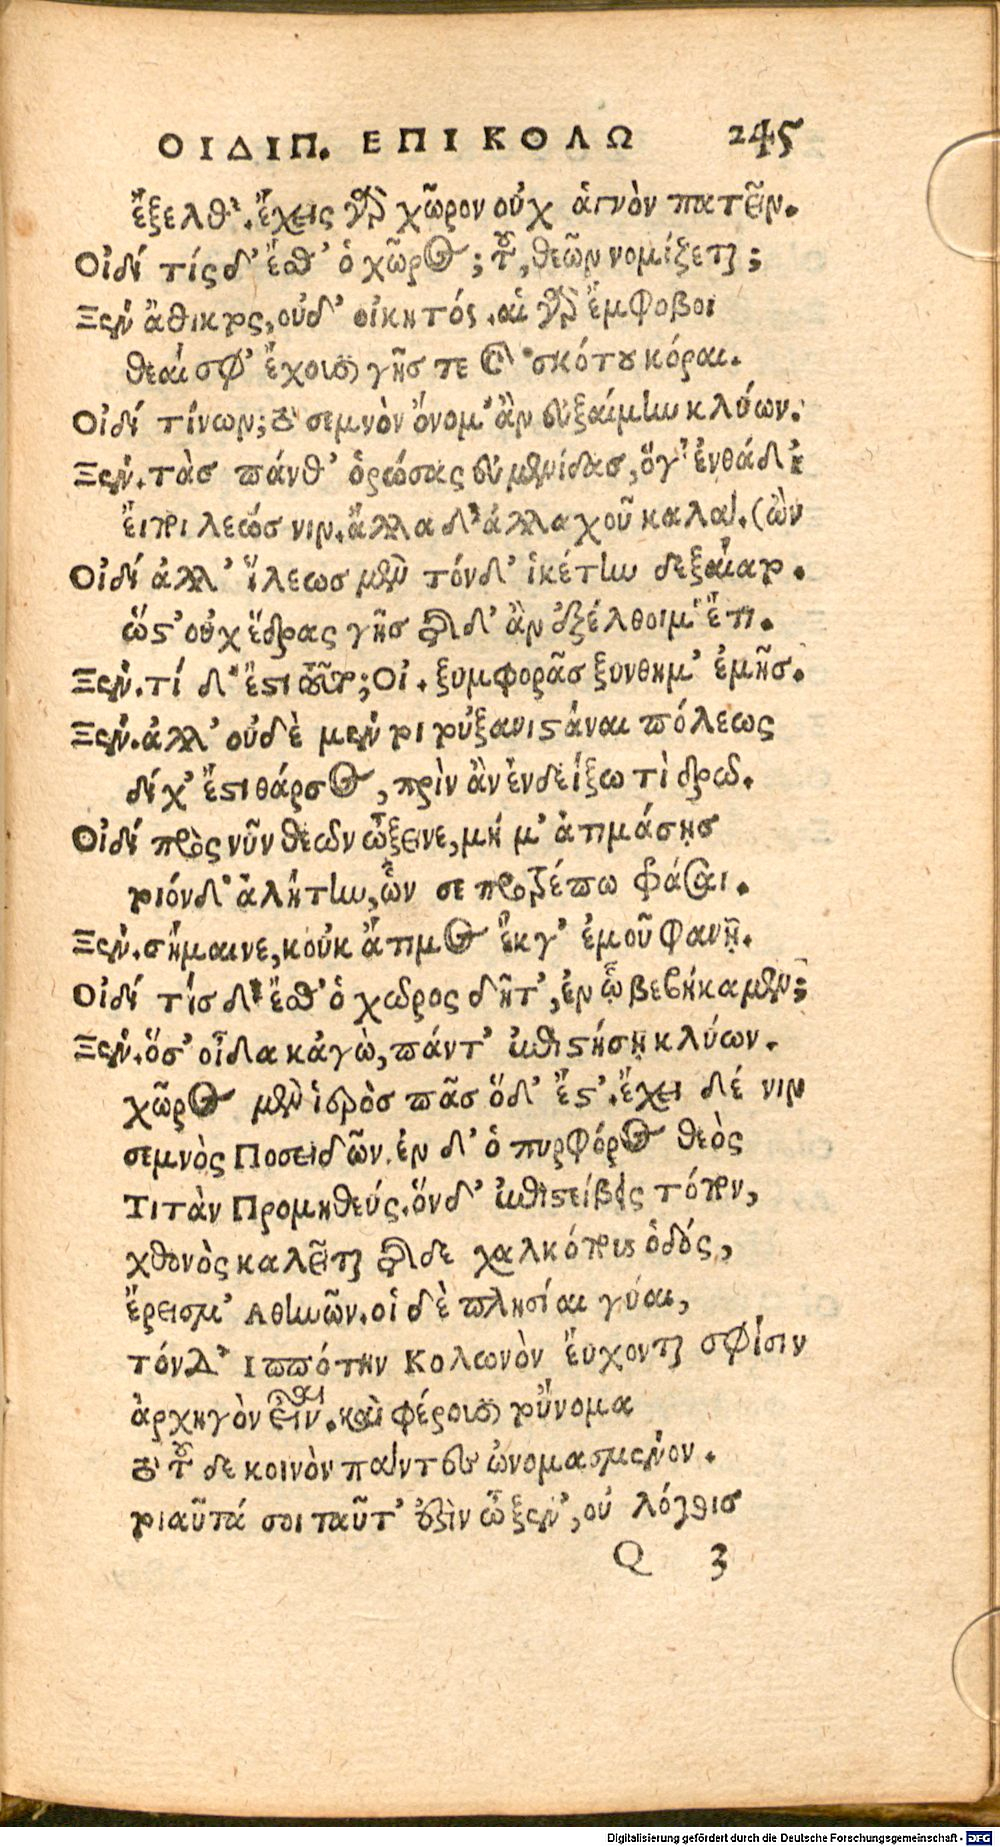 ΟΙΔΙΠ. ΕΠΙ ΚΟΛΩ 245
ἔξελθ'. ἔχεις γὰρ χῶρον οὐχ ἁγνὸν πατεῖν.
Οἰδί τίς δ' ἔσθ' ὁ χῶρος; τοῦ, θεῶν νομίζεται;
Ξεν ἄθικτος, οὐδ' οἰκητός. αἱ γὰρ ἔμφοβοι
θεαί σφ' ἔχουσι γῆς τε καὶ σκότου κόραι.
Οἰδί τίνων; τὸ σεμνὸν ὄνομ' ἂν εὐξαίμην κλύων.
Ξεν. τὰς πάνθ' ὁρώσας εὐμενίδας, ὅγ' ἐνθάδ'
εἴποι λεώς νιν. ἄλλα δ' ἀλλαχοῦ καλά. (ὢν
Οἰδί ἀλλ' ἵλεως μὲν τόνδ' ἱκέτην δεξαίατο.
ὥστ' οὐχ ἕδρας γῆς τῆσδ' ἂν ἐξέλθοιμ' ἔτι.
Ξεν. τί δ' ἔστι τοῦτο; Οἰ. ξυμφορᾶς ξύνθημ' ἐμῆς.
Ξεν. ἀλλ' οὐδὲ μέν τοι τοὐξανιστάναι πόλεως
δίχ' ἔστι θάρσος, πρὶν ἂν ἐνδείξω τὶ δρῶ.
Οἰδί πρὸς νῦν θεῶν ὦ ξεῖνε, μή μ' ἀτιμάσῃς
τοιόνδ' ἀλήτην, ὧν σε προστρέπω φράσαι.
Ξεν. σήμαινε, κοὐκ ἄτιμος ἔκ γ' ἐμοῦ φανῇ.
Οἰδί τίς δ' ἔσθ' ὁ χῶρος δῆτ', ἐν ᾧ βεβήκαμεν;
Ξεν. ὅσ' οἶδα κἀγὼ, πάντ' ἐπιστήσῃ κλύων.
χῶρος μὲν ἱερὸς πᾶς ὅδ' ἔστ'. ἔχει δέ νιν
σεμνὸς Ποσειδῶν. ἐν δ' ὁ πυρφόρος θεὸς
Τιτὰν Προμηθεύς. ὅνδ' ἐπιστείβεις τόπον,
χθονὸς καλεῖται τῆσδε χαλκόπους ὁδός,
ἔρεισμ' Ἀθηνῶν. οἱ δὲ πλησίαι γύαι,
τόνδ' Ἱππότην Κολωνὸν εὔχονται σφίσιν
ἀρχηγὸν εἶναι. καὶ φέρουσι τοὔνομα
τὸ τοῦδε κοινὸν πάντες ὠνομασμένον.
τοιαῦτά σοι ταῦτ' ἐστὶν ὦ ξέν', οὐ λόγοις
Q 3
Digitalisierung gefördert durch die Deutsche Forschungsgemeinschaft - DFG